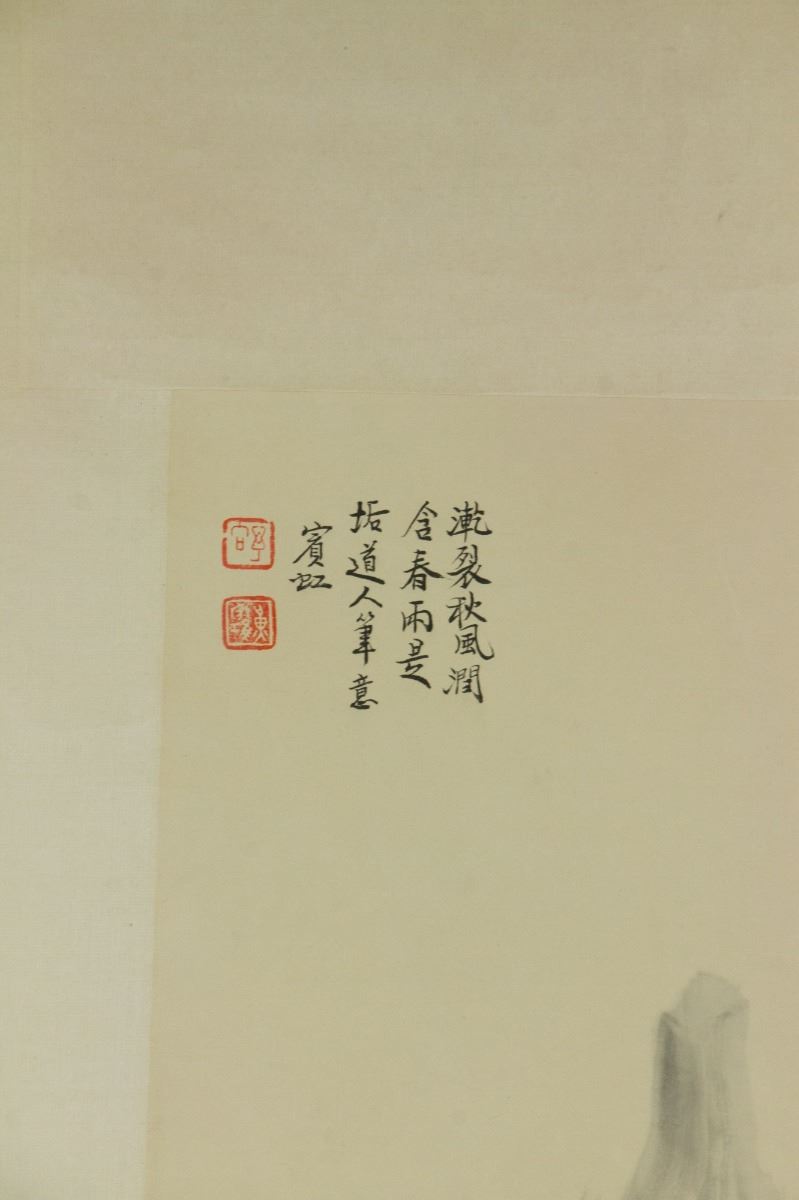 漧裂秋風潤
含春雨是
垢道人筆意
賓虹